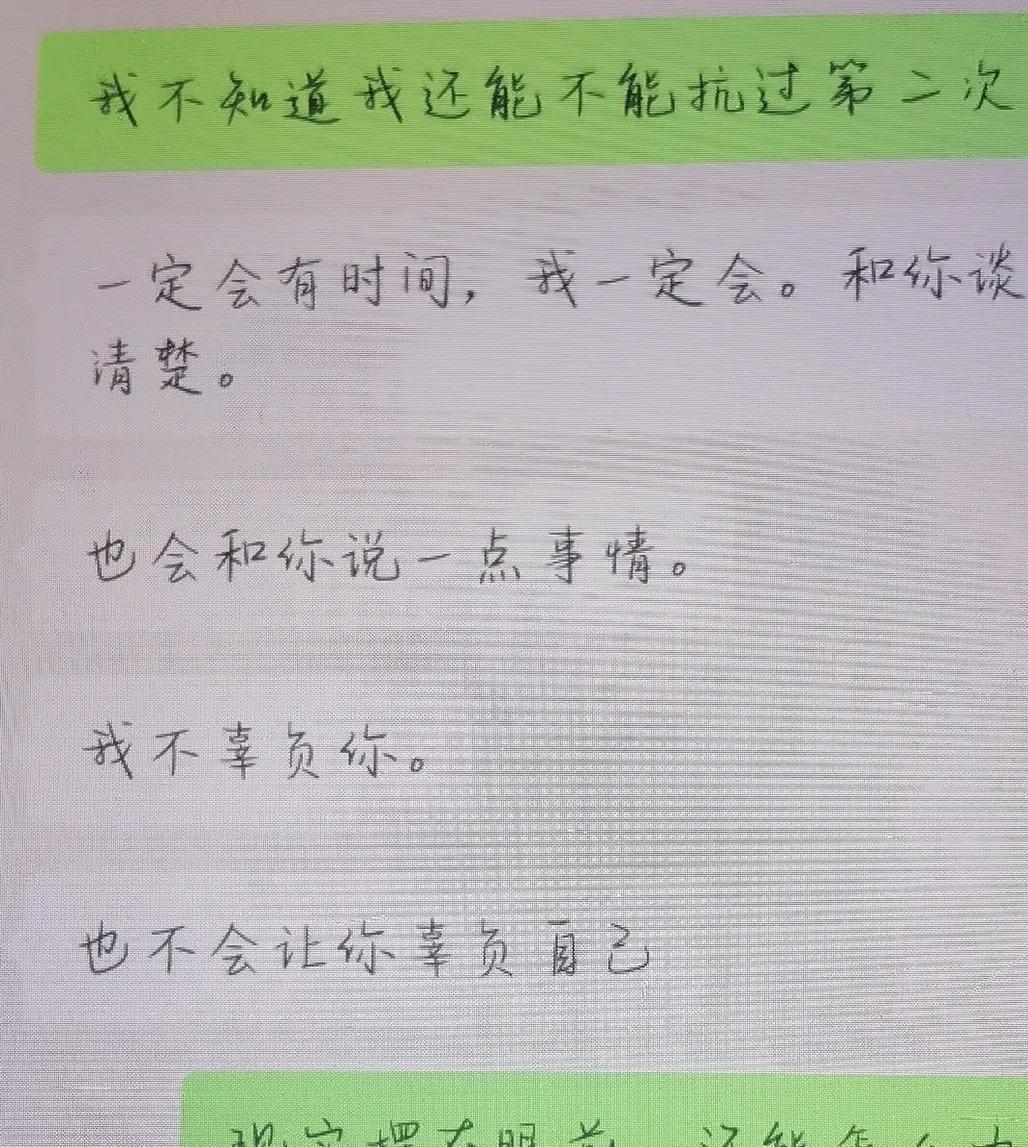 我不知道我还能不能抗过第二次
一定会有时间，我一定会。和你谈
清楚。
也会和你说一点事情。
我不辜负你。
也不会让你辜负自己